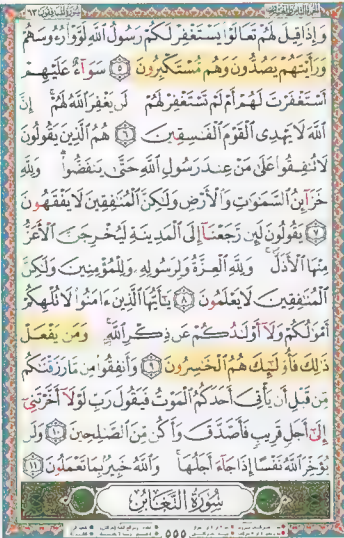 سورة المنافقون ٦٣
وَإِذَا قِيلَ لَهُمْ تَعَالَوْا۟ يَسْتَغْفِرْ لَكُمْ رَسُولُ ٱللَّهِ لَوَّوْا۟ رُءُوسَهُمْ
وَرَأَيْتَهُمْ يَصُدُّونَ وَهُم مُّسْتَكْبِرُونَ ٥ سَوَآءٌ عَلَيْهِمْ
أَسْتَغْفَرْتَ لَهُمْ أَمْ لَمْ تَسْتَغْفِرْ لَهُمْ لَن يَغْفِرَ ٱللَّهُ لَهُمْ ۚ إِنَّ
ٱللَّهَ لَا يَهْدِى ٱلْقَوْمَ ٱلْفَـٰسِقِينَ ٦ هُمُ ٱلَّذِينَ يَقُولُونَ
لَا تُنفِقُوا۟ عَلَىٰ مَنْ عِندَ رَسُولِ ٱللَّهِ حَتَّىٰ يَنفَضُّوا۟ ۗ وَلِلَّهِ
خَزَآئِنُ ٱلسَّمَـٰوَٰتِ وَٱلْأَرْضِ وَلَـٰكِنَّ ٱلْمُنَـٰفِقِينَ لَا يَفْقَهُونَ
٧ يَقُولُونَ لَئِن رَّجَعْنَآ إِلَى ٱلْمَدِينَةِ لَيُخْرِجَنَّ ٱلْأَعَزُّ
مِنْهَا ٱلْأَذَلَّ ۚ وَلِلَّهِ ٱلْعِزَّةُ وَلِرَسُولِهِۦ وَلِلْمُؤْمِنِينَ وَلَـٰكِنَّ
ٱلْمُنَـٰفِقِينَ لَا يَعْلَمُونَ ٨ يَـٰٓأَيُّهَا ٱلَّذِينَ ءَامَنُوا۟ لَا تُلْهِكُمْ
أَمْوَٰلُكُمْ وَلَآ أَوْلَـٰدُكُمْ عَن ذِكْرِ ٱللَّهِ ۚ وَمَن يَفْعَلْ
ذَٰلِكَ فَأُو۟لَـٰٓئِكَ هُمُ ٱلْخَـٰسِرُونَ ٩ وَأَنفِقُوا۟ مِن مَّا رَزَقْنَـٰكُم
مِّن قَبْلِ أَن يَأْتِىَ أَحَدَكُمُ ٱلْمَوْتُ فَيَقُولَ رَبِّ لَوْلَآ أَخَّرْتَنِىٓ
إِلَىٰٓ أَجَلٍ قَرِيبٍ فَأَصَّدَّقَ وَأَكُن مِّنَ ٱلصَّـٰلِحِينَ ١٠ وَلَن
يُؤَخِّرَ ٱللَّهُ نَفْسًا إِذَا جَآءَ أَجَلُهَا ۚ وَٱللَّهُ خَبِيرٌۢ بِمَا تَعْمَلُونَ ١١
سُورَةُ التَّغَابُنِ
٥٥٥